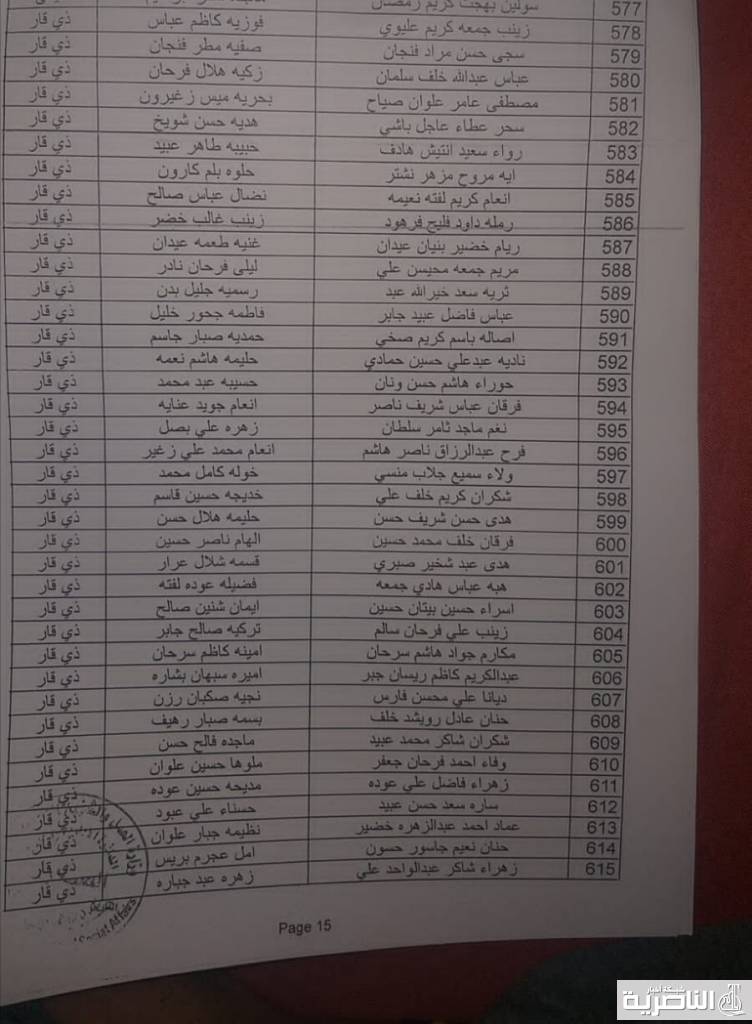 577 سولين بهجت كريم رمضان
578 زينب جمعه كريم عليوي فوزيه كاظم عباس ذي قار
579 سجى حسن مراد فنجان صفيه مطر فنجان ذي قار
580 عباس عبدالله خلف سلمان زكيه هلال فرحان ذي قار
581 مصطفى عامر علوان صياح بحريه ميس زغيرون ذي قار
582 سحر عطاء عاجل باشي هديه حسن شويخ ذي قار
583 رواء سعيد انتيش هادف حبيبه طاهر عبيد ذي قار
584 ايه مروح مزهر نشتر حلوه بلم كارون ذي قار
585 انعام كريم لفته نعيمه نضال عباس صالح ذي قار
586 رمله داود فليح فرهود زينب غالب خضر ذي قار
587 ريام خضير بنيان عيدان غنيه طعمه عيدان ذي قار
588 مريم جمعه محيسن علي ليلى فرحان نادر ذي قار
589 ثريه سعد خيرالله عبد رسميه جليل بدن ذي قار
590 عباس فاضل عبيد جابر فاطمه جحور خليل ذي قار
591 اصاله باسم كريم صخي حمديه صبار جاسم ذي قار
592 ناديه عبدعلي حسين حمادي حليمه هاشم نعمه ذي قار
593 حوراء هاشم حسن ونان حسيبه عبد محمد ذي قار
594 فرقان عباس شريف ناصر انعام جويد عنايه ذي قار
595 نغم ماجد ثامر سلطان زهره علي بصل ذي قار
596 فرح عبدالرزاق ناصر هاشم انعام محمد علي زغير ذي قار
597 ولاء سميع جلاب منسي خوله كامل محمد ذي قار
598 شكران كريم خلف علي خديجه حسين قاسم ذي قار
599 هدى حسن شريف حسن حليمه هلال حسن ذي قار
600 فرقان خلف محمد حسين الهام ناصر حسين ذي قار
601 هدى عبد شخير صبري قسمه شلال عرار ذي قار
602 هبه عباس هادي جمعه فضيله عوده لفته ذي قار
603 اسراء حسين بيتان حسين ايمان شنين صالح ذي قار
604 زينب علي فرحان سالم تركيه صالح جابر ذي قار
605 مكارم جواد هاشم سرحان امينه كاظم سرحان ذي قار
606 عبدالكريم كاظم ريسان جبر اميره سبهان بشاره ذي قار
607 ديانا علي محسن فارس نجيه صكبان رزن ذي قار
608 حنان عادل رويشد خلف بسمه صبار رهيف ذي قار
609 شكران شاكر محمد عبيد ماجده فالح حسن ذي قار
610 وفاء احمد فرحان جعفر ملوها حسين علوان ذي قار
611 زهراء فاضل علي عوده مديحه حسين عوده ذي قار
612 ساره سعد حسن عبيد حسناء علي عبود ذي قار
613 عماد احمد عبدالزهره خضير نظيمه جبار علوان ذي قار
614 حنان نعيم جاسور حسون امل عجرم بريس ذي قار
615 زهراء شاكر عبدالواحد علي زهره عبد جباره ذي قار
Page 15
شبكة أخبار
الناصرية